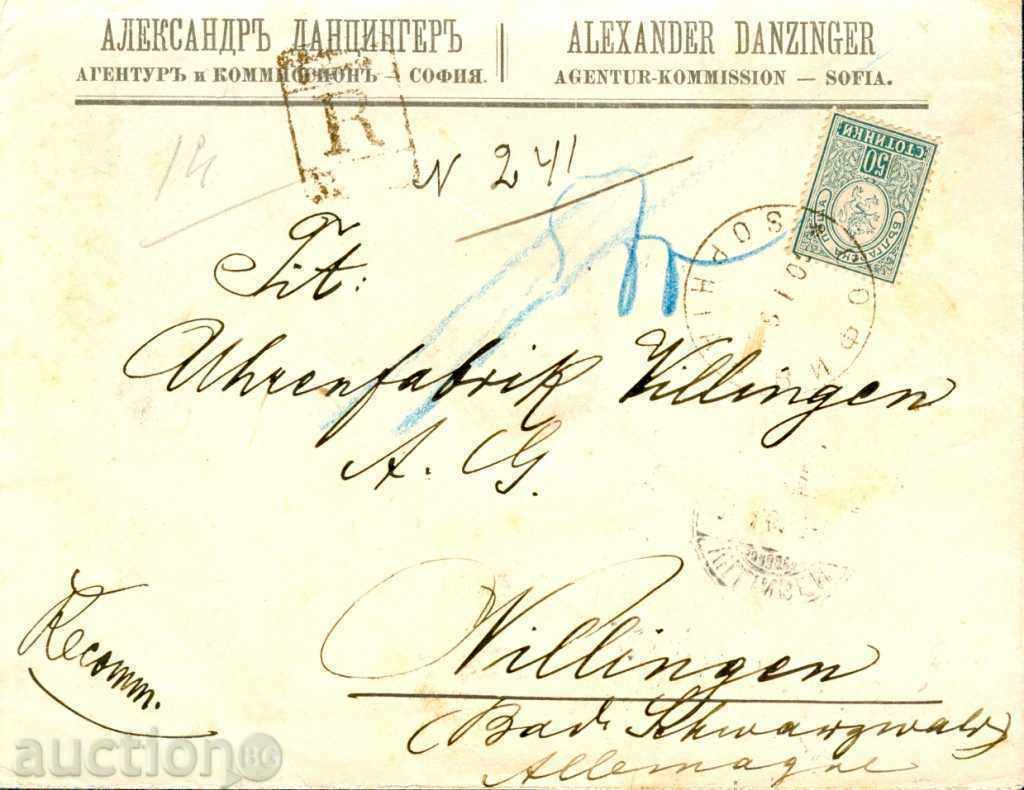 АЛЕКСАНДРЪ ДАНЦИНГЕРЪ
АГЕНТУРЪ и КОММИСИОНЪ — СОФИЯ.
ALEXANDER DANZINGER
AGENTUR-KOMMISSION — SOFIA.
R
14
N 241
50
СТОТИНКИ
БЪЛГАРСКА ПОЩА
СОФИЯ
SOPHIA
Tit:
Uhrenfabrik Villingen
A. G.
Recomm.
Villingen
(Bad. Schwarzwald)
Allemagne
auctionBG